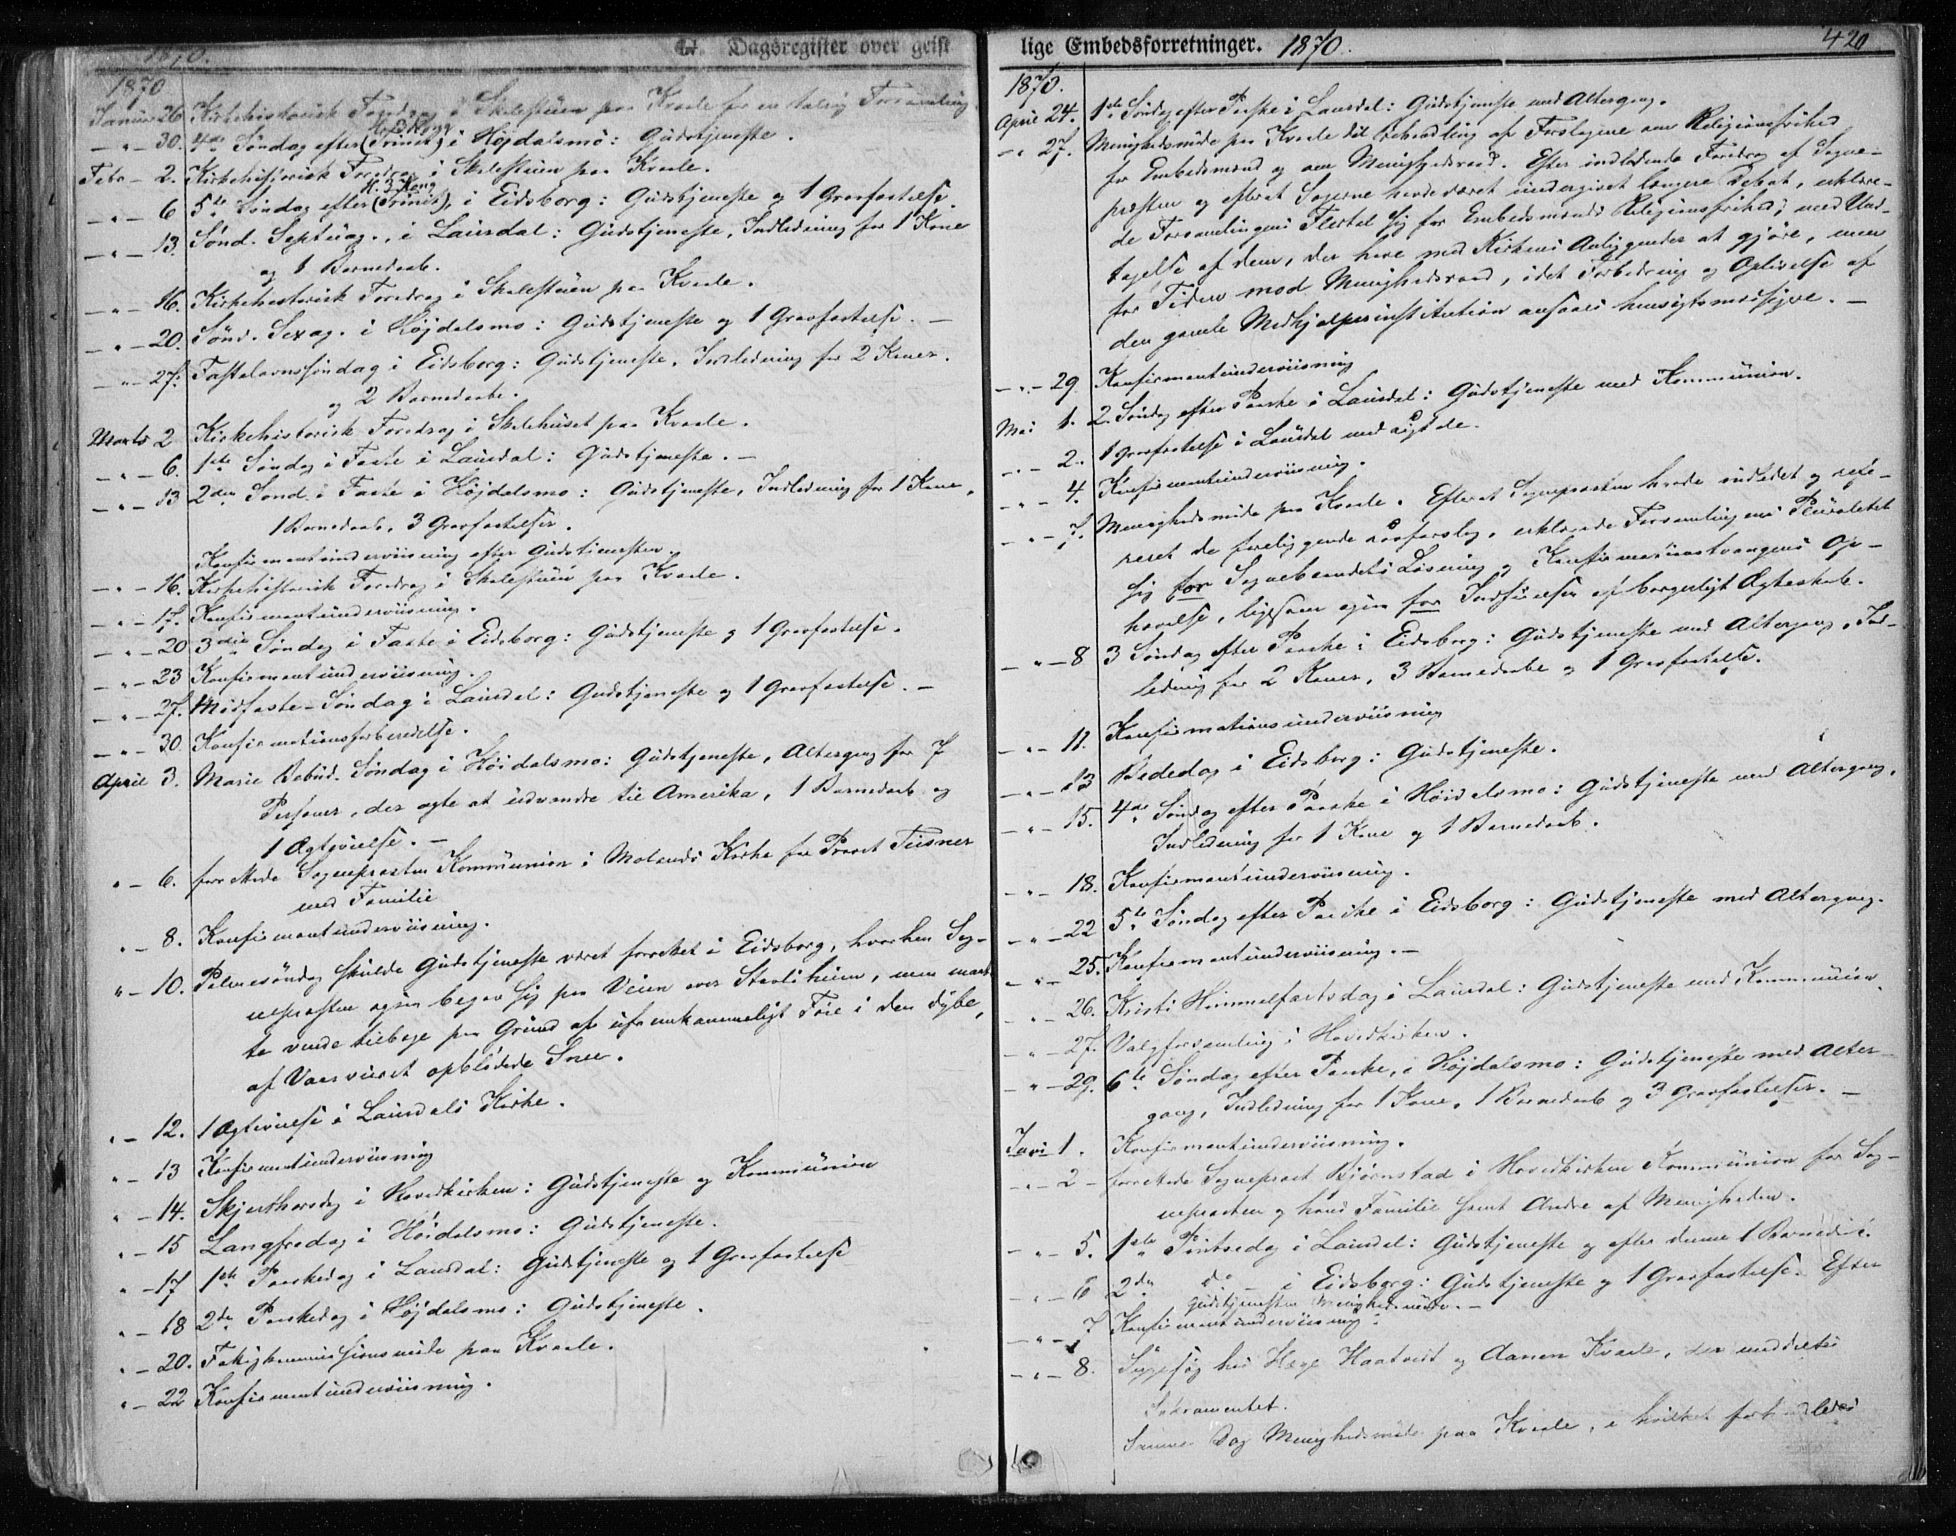 1870. G. Dagsregister over geist
1870
Januar 26 Kirkehistorisk Foredrag i Skolestuen paa Kvaale for en talrig Forsamling
— " — 30. 4de Søndag efter (Trinit) H. 3 Kong i Höjdalsmo: Gudstjeneste.
Febr — 2. Kirkehistorisk Foredrag i Skolestuen paa Kvaale.
— " — 6 5te Søndag efter (Trinit), H. 3 Kong i Eidsborg: Gudstjeneste og 1 Gravfæstelse.
— " — 13. Sönd. Septuag., i Laurdal: Gudstjeneste, Indledning for 1 Kone
og 1 Barnedaab.
— " — 16. Kirkehistorisk Foredrag i Skolestuen paa Kvaale.
— " — 20. Sönd. Sexag. i Höjdalsmo: Gudstjeneste og 1 Gravfæstelse. —
— " — 27. Fastelavnssøndag i Eidsborg: Gudstjeneste, Indledning for 2 Koner.
og 2 Barnedaabe.
Marts 2 Kirkehistorisk Foredrag i Skolehuset paa Kvaale.
— " — 6. 1ste Søndag i Faste i Laurdal: Gudstjeneste. —
— " — 13 2den Sönd. i Faste i Höjdalsmo: Gudstjeneste, Indledning for 1 Kone,
1 Barnedaab, 3 Gravfæstelser.
Konfirmantundervisning efter Gudstjenesten.
— " — 16. Kirkehistorisk Foredrag i Skolestuen paa Kvaale.
— " — 17. Konfirmantundervisning.
— " — 20 3die Søndag i Faste i Eidsborg: Gudstjeneste og 1 Gravfæstelse.
— " — 23 Konfirmantundervisning.
— " — 27. Midfaste-Søndag i Laurdal: Gudstjeneste og 1 Gravfæstelse. —
— " — 30. Konfirmationsforberedelse.
April 3. Mariæ Bebud. Søndag i Höidalsmo: Gudstjeneste, Altergang for 7
Personer, der agte at udvandre til Amerika, 1 Barnedaab og
1 Ægtevielse. —
" — 6. forrettede Sognepræsten Kommunion i Molands Kirke for Provst Teisner
med Familie
" — 8. Konfirmantundervisning.
" — 10. Palmesøndag skulde Gudstjeneste været forrettet i Eidsborg, hvorhen Sog-
nepræsten ogsaa begav sig paa Veien over, men maat
te vende tilbage paa Grund af ufremkommeligt Føre i den dybe,
af Vaarveiret opblødede Snee.
" — 12. 1 Ægtevielse i Laurdals Kirke.
" — 13 Konfirmantundervisning
" — 14. Skjærthorsdag i Hovedkirken: Gudstjeneste og Kommunion
" — 15 Langfredag i Höidalsmo: Gudstjeneste.
" — 17 1ste Paaskedag i Laurdal: Gudstjeneste og 1 Gravfæstelse
" — 18 2den Paaskedag i Höjdalsmo: Gudstjeneste.
" — 20. Fattigkommissionsmøde paa Kvaale.
" — 22 Konfirmantundervisning.
lige Embedsforretninger. 1870. 420
1870.
April 24. 1ste Søndag efter Paaske i Laurdal: Gudstjeneste med Altergang.
— " 27. Menighedsmøde paa Kvaale til Behandling af Forslagene om Religionsfrihed
for Embedsmænd og om Menighedsraad. Efter indledende Foredrag af Sogne-
præsten og efterat Sagerne havde været undergivet længere Debat, erklære-
de Forsamlingens Flertal sig for Embedsmænds Religionsfrihed, med Und-
tagelse af dem, der have med Kirkens Anliggender at gjøre, men
for Tiden mod Menighedsraad, idet Forbedring og Oplivelse af
den gamle Medhjelperinstitution ansaaes hensigtsmæssigere. —
— " — 29. Konfirmantundervisning
Mai 1. 2. Søndag efter Paaske i Laurdal: Gudstjeneste med Kommunion.
— " — 2. 1 Gravfæstelse i Laurdal
— " — 4. Konfirmantundervisning.
— " — 7. Menighedsmøde paa Kvaale. Efterat Sognepræsten havde indledet og refe-
reret de foreliggende Lovforslag, erklærede Forsamlingens Pluralitet
sig for Sognebaandets Løsning og Konfirmationstvangens Op-
hævelse, ligesom ogsaa for Indførelsen af borgerligt Ægteskab.
— " — 8 3 Søndag efter Paaske i Eidsborg: Gudstjeneste med Altergang, Ind-
ledning for 2 Koner, 3 Barnedaabe og 1 Gravfæstelse.
— " — 11. Konfirmationsundervisning
— " — 13 Bededag i Eidsborg: Gudstjeneste.
— " — 15. 4de Søndag efter Paaske i Höidalsmo: Gudstjeneste med Altergang,
Indledning for 1 Kone og 1 Barnedaab.
— " — 18. Konfirmantundervisning.
— " — 22 5te Søndag efter Paaske i Eidsborg: Gudstjeneste med Altergang.
— " — 25. Konfirmantundervisning. —
— " — 26. Kristi Himmelfartsdag i Laurdal: Gudstjeneste med Kommunion.
— " — 27. Valgforsamling i Hovedkirken.
— " — 29. 6te Søndag efter Paaske, i Höjdalsmo: Gudstjeneste med Alter-
gang, Indledning for 1 Kone, 1 Barnedaab og 3 Gravfæstelser. —
Juni 1. Konfirmantundervisning.
— " — 2 — forrettede Sognepræst Bjørnstad i Hovedkirken Kommunion for Sog-
nepræsten og hans Familie samt Andre af Menigheden.
— " — 5. 1ste Pintsedag i Laurdal: Gudstjeneste og efter denne 1
— " — 6 2den do — i Eidsborg: Gudstjeneste og 1 Gravfæstelse. Efter
Gudstjenesten Menighedsmøde. —
— " — 7 Konfirmantundervisning.
— " — 8. Sygesøg hos Hæge Haatvedt og Aanon Kvaale, der meddeeltes
Sakramentet.
Samme Dag Menighedsmøde paa Kvaale, i hvilket